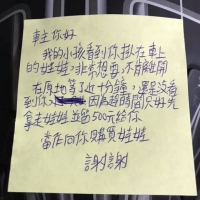 車主你好
我的小孩看到你掛在車上
的娃娃,非常想要,不肯離開
在原地等了近十分鐘,還是沒看
到你,因為趕時間只好先
拿走娃娃並留500元給你
當作向你購買娃娃
謝謝